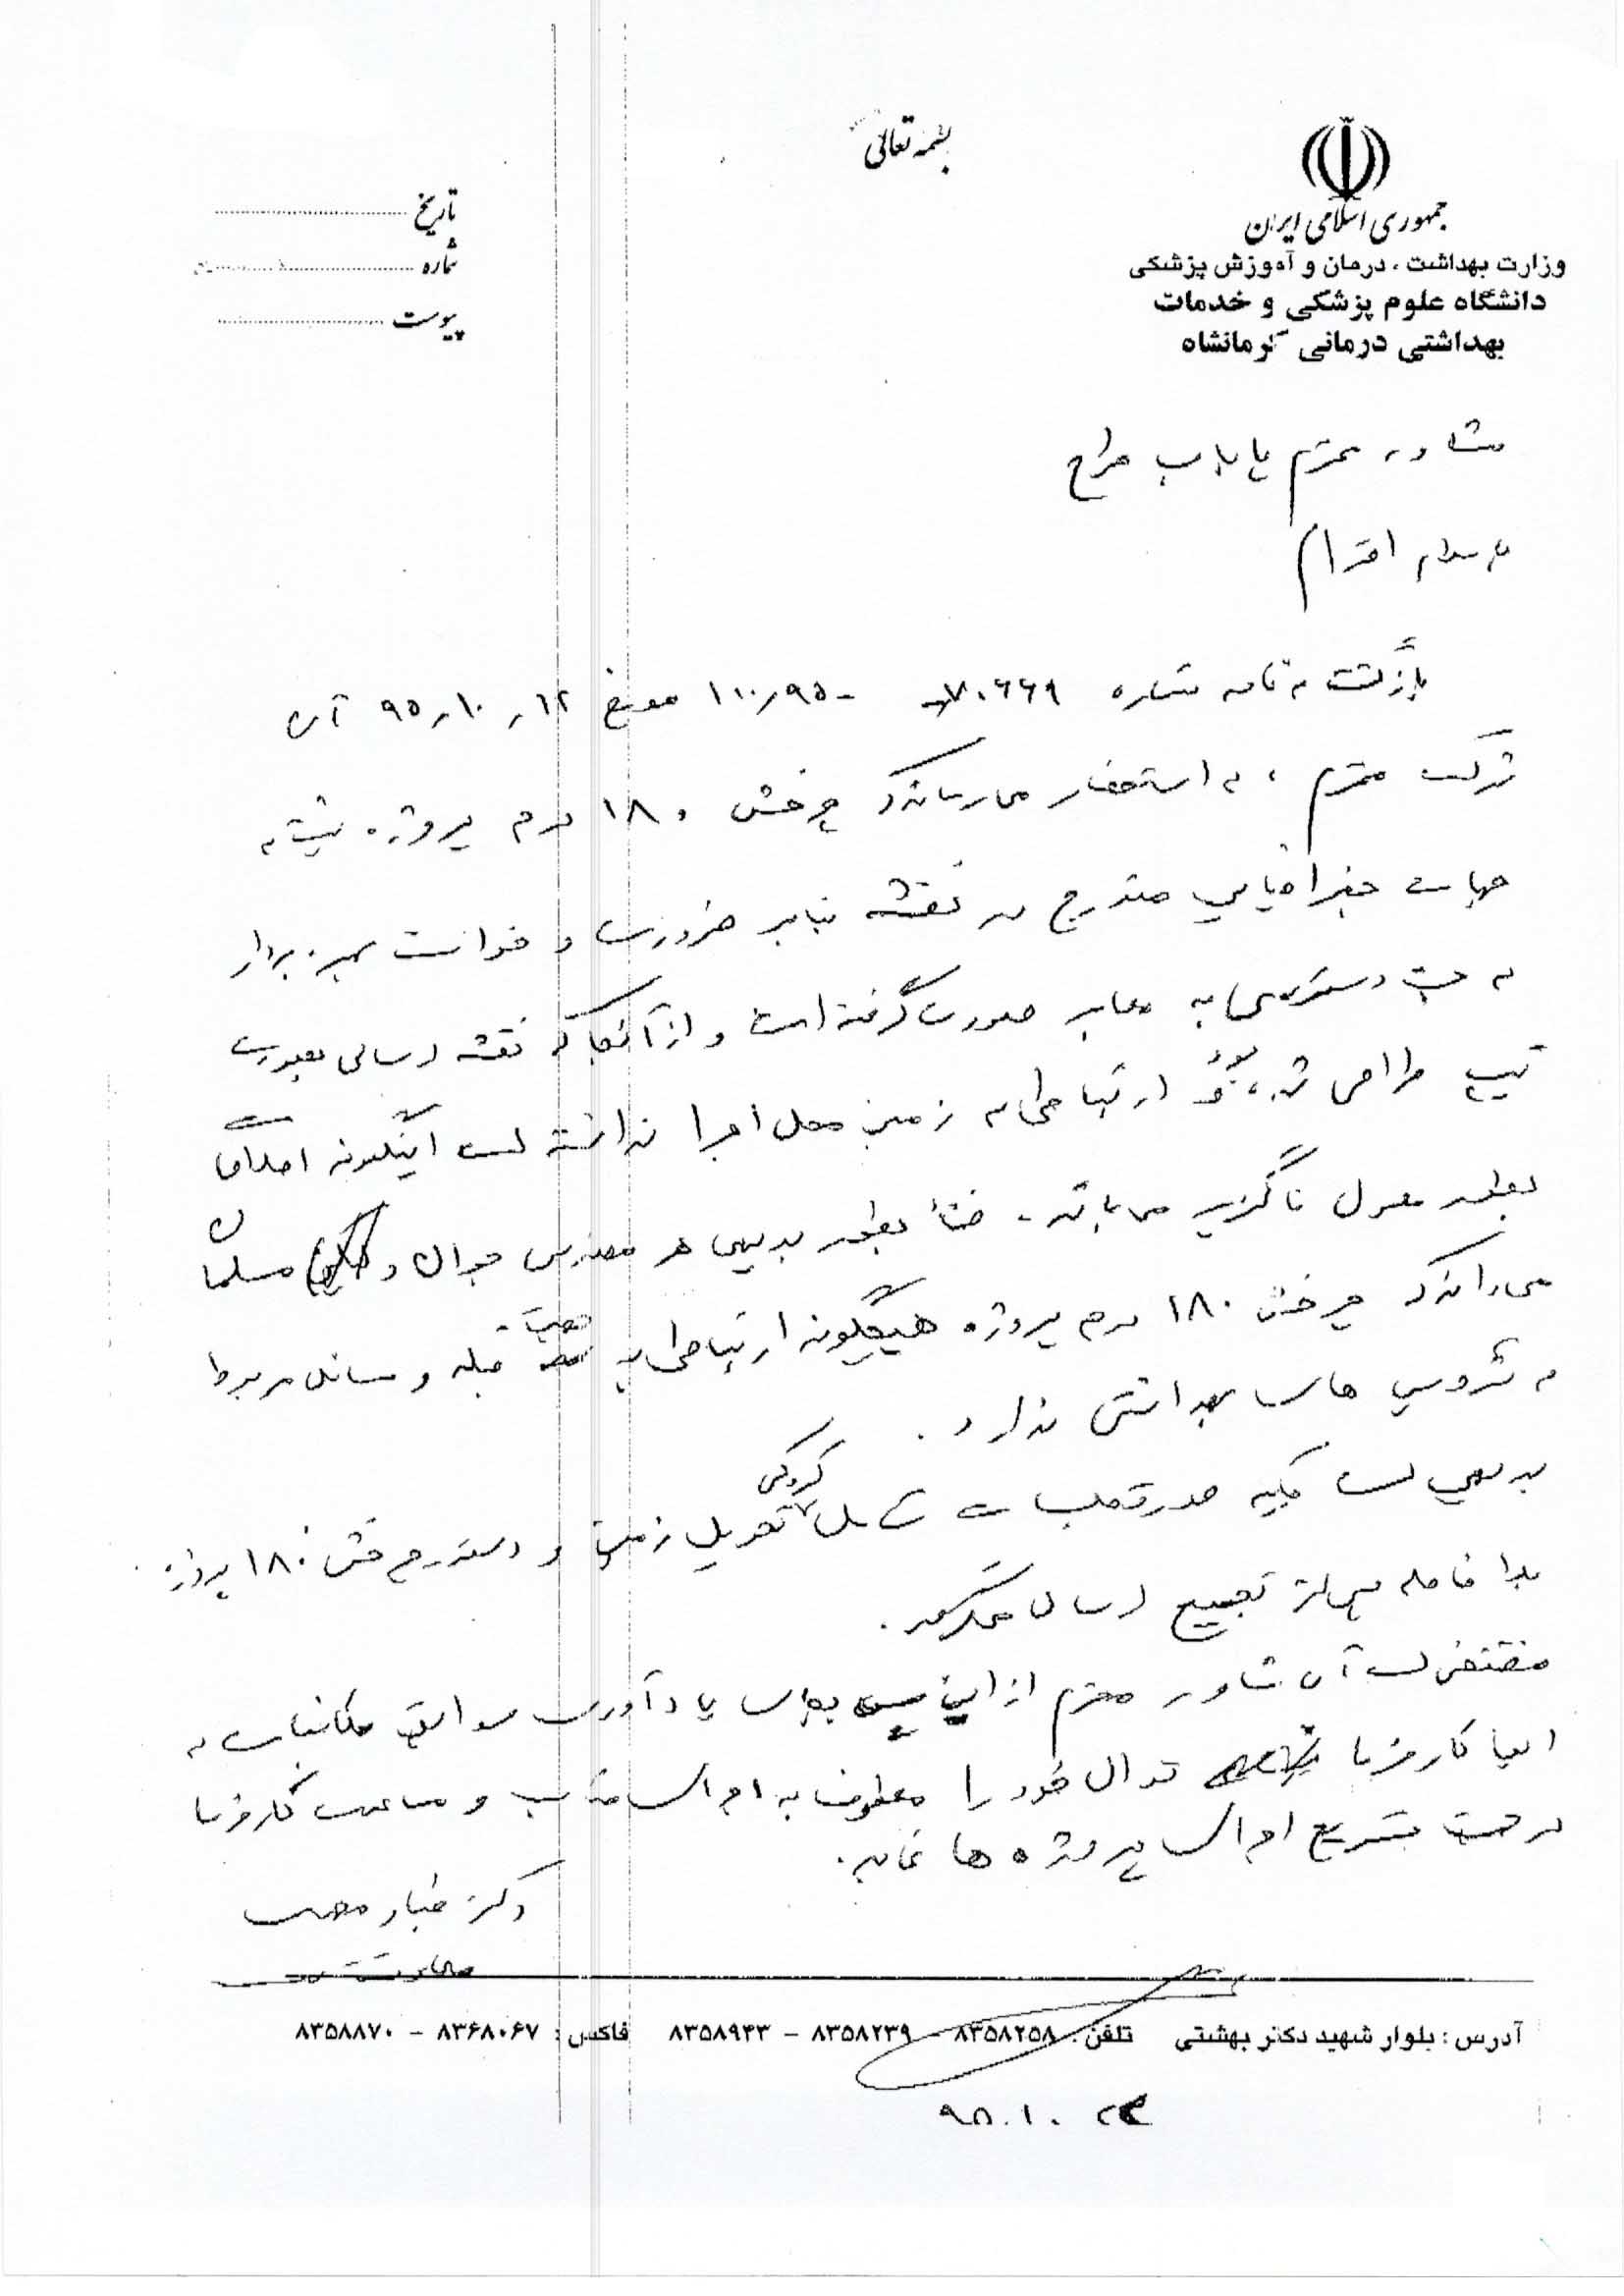 بسمه تعالی
جمهوری اسلامی ایران
وزارت بهداشت ، درمان و آموزش پزشکی
دانشگاه علوم پزشکی و خدمات
بهداشتی درمانی کرمانشاه
تاریخ
شماره
پیوست
مشاور محترم طراح
با سلام و احترام
بازگشت به نامه شماره ۷۰۶۶۹ - ۱۱۰/۹۵ مورخ ۱۲ ر ۱۰ ر ۹۵ آن
شرکت محترم ، به استحضار می رساند که چرخش ۱۸۰ درجه پروژه نسبت به
جهات جغرافیایی مندرج در نقشه بنابر ضرورت و خواست بهره بردار
به جهت دسترسی به معابر صورت گرفته است و از آنجا که نقشه ارسالی بصورت
تیپ طراحی شده بود و ارتباطی به زمین محل اجرا نداشته است اینگونه اصلاحات
بطور معمول ناگزیر می باشد . ضمناً بطور بدیهی هر مهندس جوان و مسلمان
می داند که چرخش ۱۸۰ درجه پروژه هیچگونه ارتباطی به جهت قبله و مسائل مربوط
به سرویس های بهداشتی ندارد .
بدیهی است کلیه صورتجلسات شامل کروکی تحویل زمین و دستور چرخش ۱۸۰ پروژه
بلافاصله پس از تجمیع ارسال می گردد .
مقتضی است آن مشاور محترم از این پس بجای یادآوری سوابق مکاتبات به
کارفرما توان خود را معطوف به اجرای مناسب و مساعدت کارفرما
در جهت تسریع اجرای پروژه ها نماید .
دکتر
آدرس : بلوار شهید دکتر بهشتی تلفن : ۸۳۵۸۲۵۸ - ۸۳۵۸۲۳۹ - ۸۳۵۸۹۴۳ فاکس : ۸۳۶۸۰۶۷ - ۸۳۵۸۸۷۰